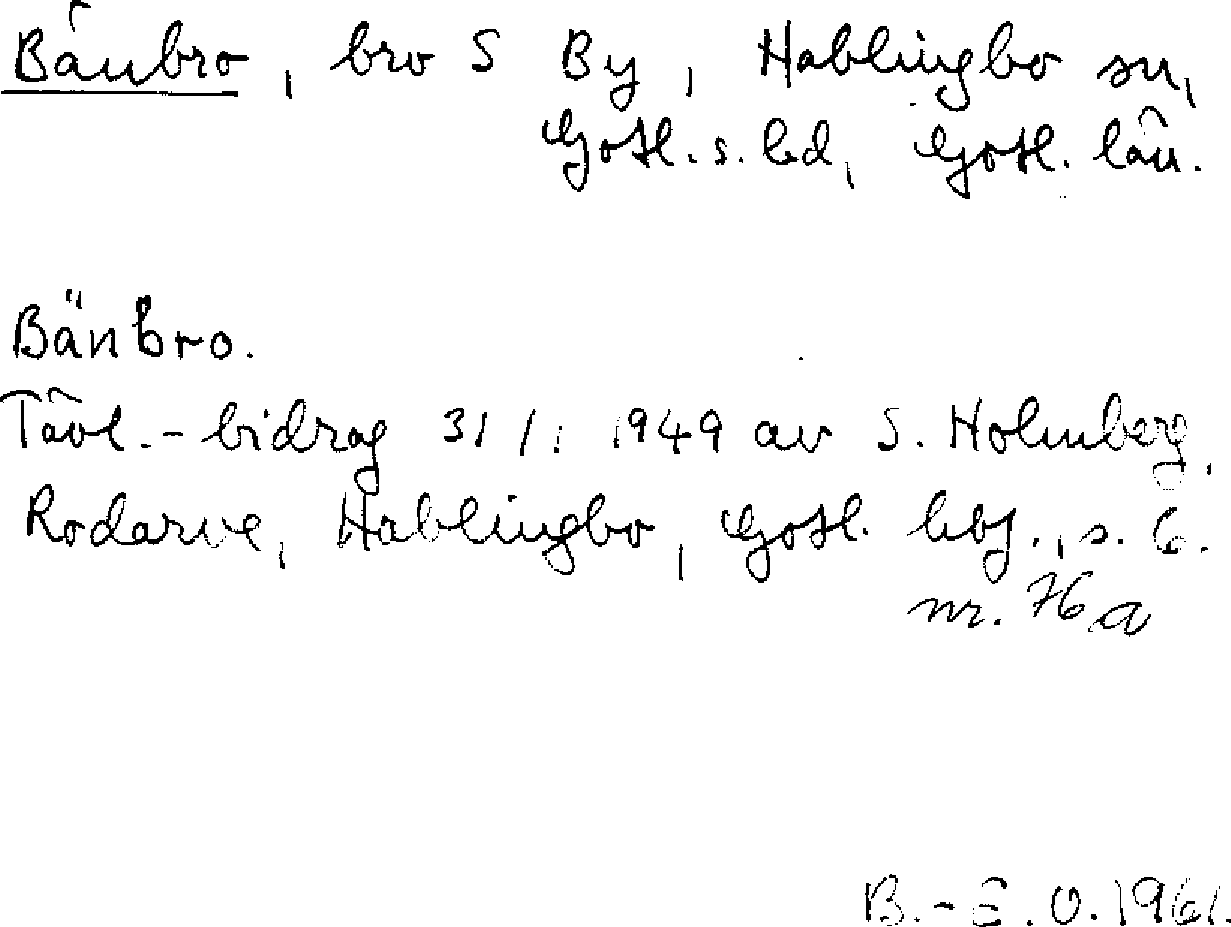 Bänbro, bro S By, Hablingbo sn,
Gotl. s. hd, Gotl. län.
Bänbro.
Tävl.-bidrag 31/1 1949 av S. Holmberg,
Rodarve, Hablingbo, Gotl. hbg., s. 6.
nr. 76 a
B.-E. O. 1961.